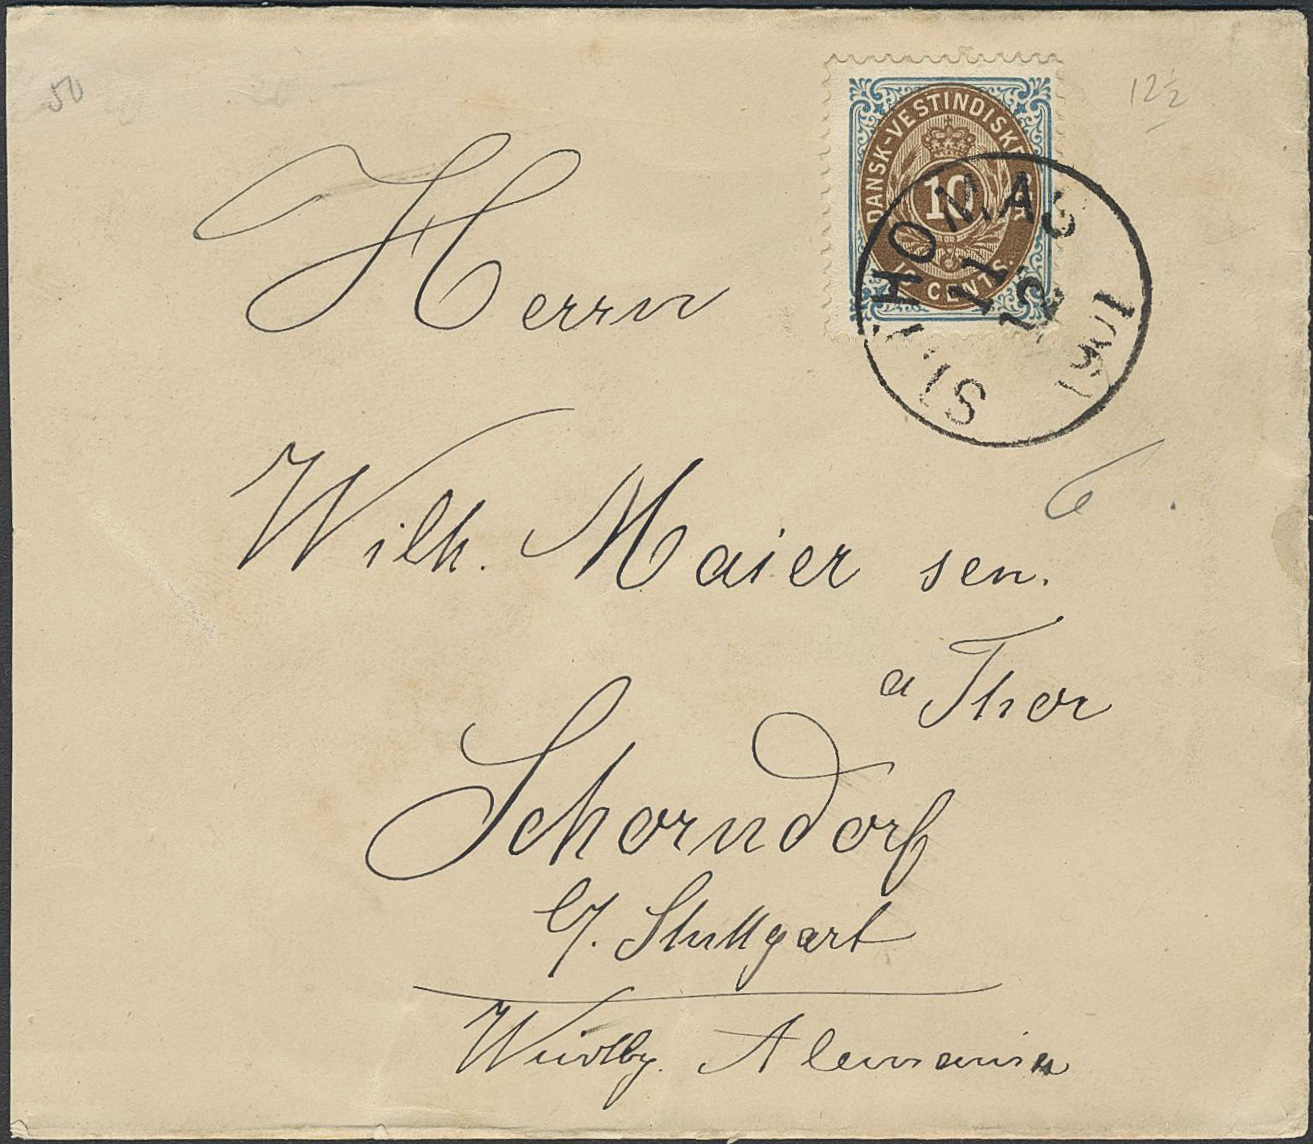 50
12½
DANSK-VESTINDISKE
10
10 CENTS.
ST. THOMAS
11
12
1901
Herrn
Wilh. Maier sen.
a Thor
Schorndorf
b/. Stuttgart
Württbg. Alemania